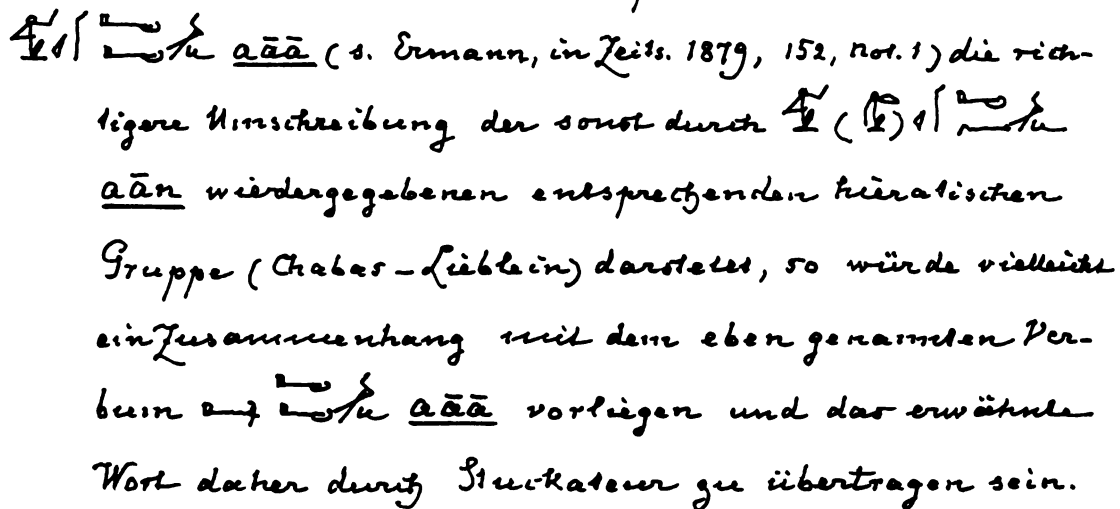 aāā (s. Ermann, in Zeits. 1879, 152, not. 1) die rich-
tigere Umschreibung der sonst durch
aān wiedergegebenen entsprechenden hieratischen
Gruppe (Chabas-Lieblein) darstellt, so würde vielleicht
ein Zusammenhang mit dem eben genannten Ver-
bum aāā vorliegen und das erwähnte
Wort daher durch Stuckateur zu übertragen sein.